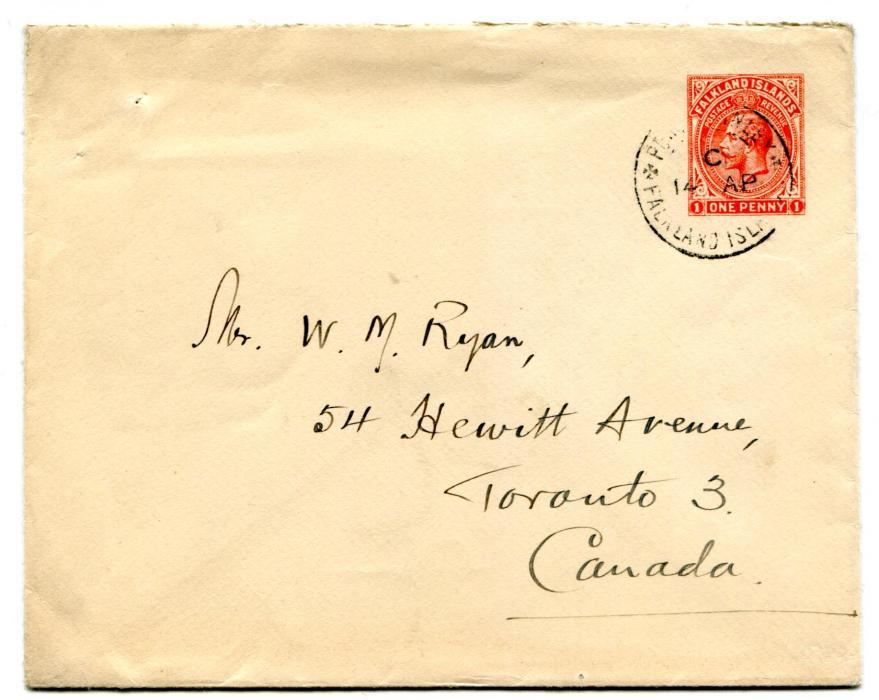 FALKLAND ISLANDS
POSTAGE REVENUE
C
14 AP
FALKLAND ISLA
1 ONE PENNY 1
Mr. W. M. Ryan,
54 Hewitt Avenue,
Toronto 3.
Canada.